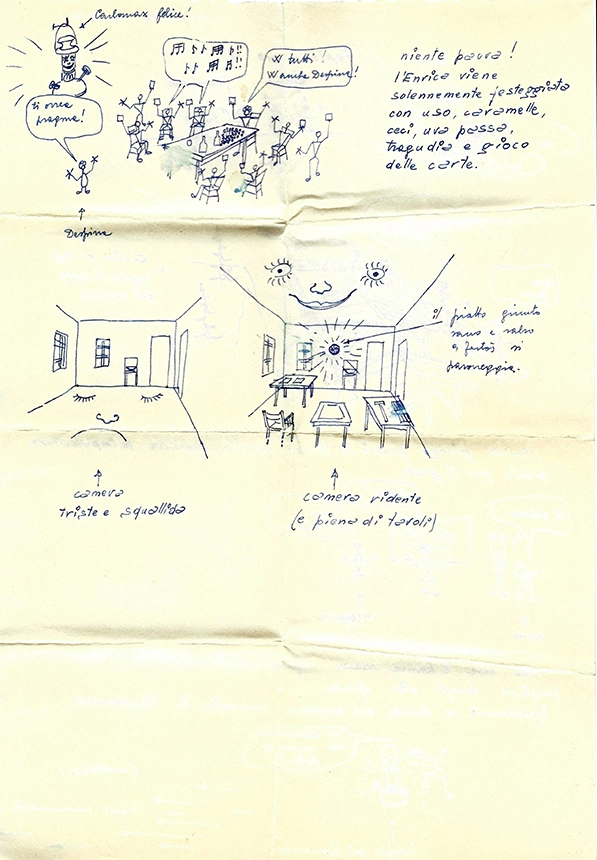 Carlomax felice!
ti orea
pragma!
W tutti!
W anche Despina!
Despina
niente paura!
l'Enrica viene
solennemente festeggiata
con uso, caramelle,
ceci, uva passa,
tragudia e gioco
delle carte.
il piatto giunto
sano e salvo
a festòs si
pavoneggia.
camera
triste e squallida
camera ridente
(e piena di tavoli)